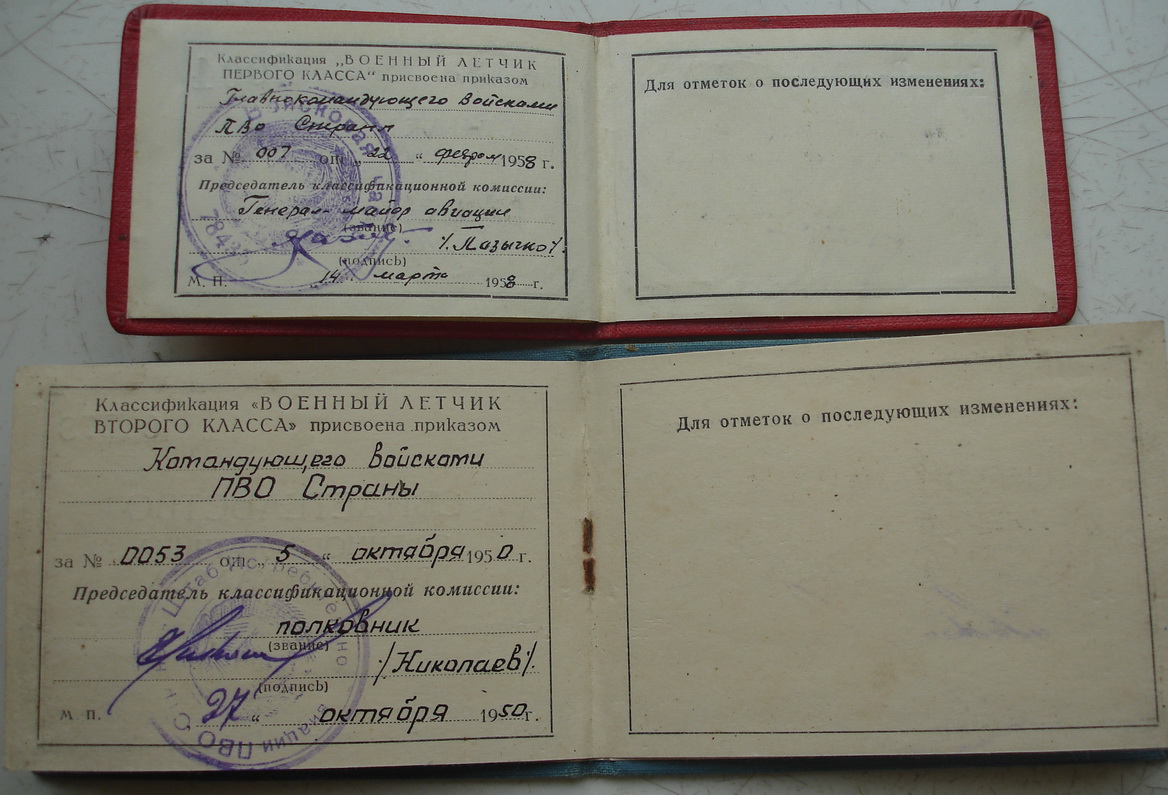 Классификация „ВОЕННЫЙ ЛЕТЧИК
ПЕРВОГО КЛАССА“ присвоена приказом
Главнокомандующего Войсками
ПВО Страны
за № 007 от „22“ февраля 1958 г.
Председатель классификационной комиссии:
Генерал-майор авиации
(звание)
/.Пазычко/.
(подпись)
М. П. „14“ марта 1958 г.
Войсковая часть
78436
Для отметок о последующих изменениях:
Классификация «ВОЕННЫЙ ЛЕТЧИК
ВТОРОГО КЛАССА» присвоена приказом
Командующего Войсками
ПВО Страны
за № 0053 от „5“ октября 1950 г.
Председатель классификационной комиссии:
полковник
(звание)
/Николаев/.
(подпись)
М. П. 27“ октября 1950 г.
Штаб Истребительно
авиации ПВО
Для отметок о последующих изменениях: